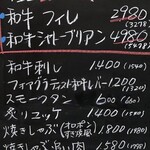 和牛 フィレ 2980
(3278)
和牛シャトーブリアン 4980
(5478)
和牛刺し 1400(1540)
フォアグラテイスト和牛レバー1200
(1320)
スモークタン 600(660)
炙りユッケ 1400(1540)
焼きしゃぶ(オロポン すき焼風) 1800(1980)
1580(